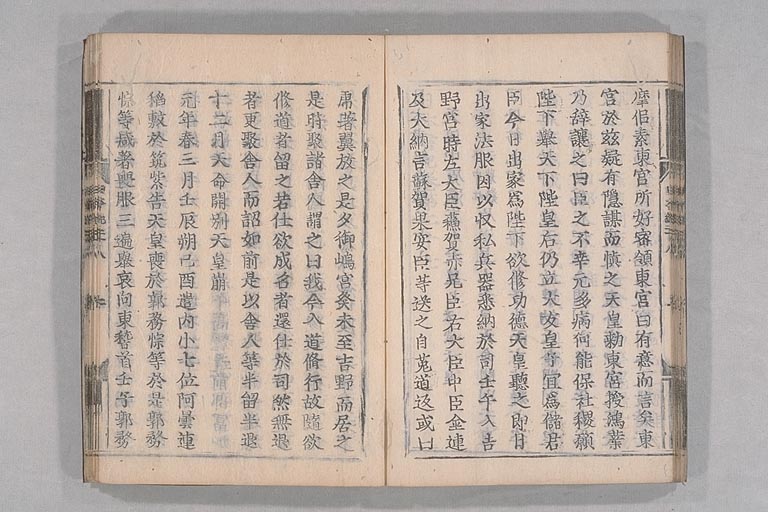 摩侶素東宮所好審領東宮曰有意而言矣東
宮於茲疑有隱謀而慎之天皇勅東宮授鴻業
乃辭讓之曰臣之不幸元多病何能保社稷願
陛下擧天下陛皇后仍立大友皇子宜爲儲君
臣今日出家爲陛下欲修功德天皇聽之即日
出家法服因以収私兵器悉納於司壬午入吉
野宮時左大臣蘇賀赤兄臣右大臣中臣金連
及大納言蘇賀果安臣等送之自菟道返或曰
虎著翼放之是夕御嶋宮癸未至吉野而居之
是時聚諸舍人謂之曰我今入道脩行故隨欲
修道者留之若仕欲成名者還仕於司然無退
者更聚舍人而詔如前是以舍人等半留半退
十二月天命開別天皇崩
元年春三月壬辰朔己酉遣内小七位阿曇連
稻敷於筑紫告天皇喪於郭務悰等於是郭務
悰等咸著喪服三遍擧哀向東稽首壬子郭務